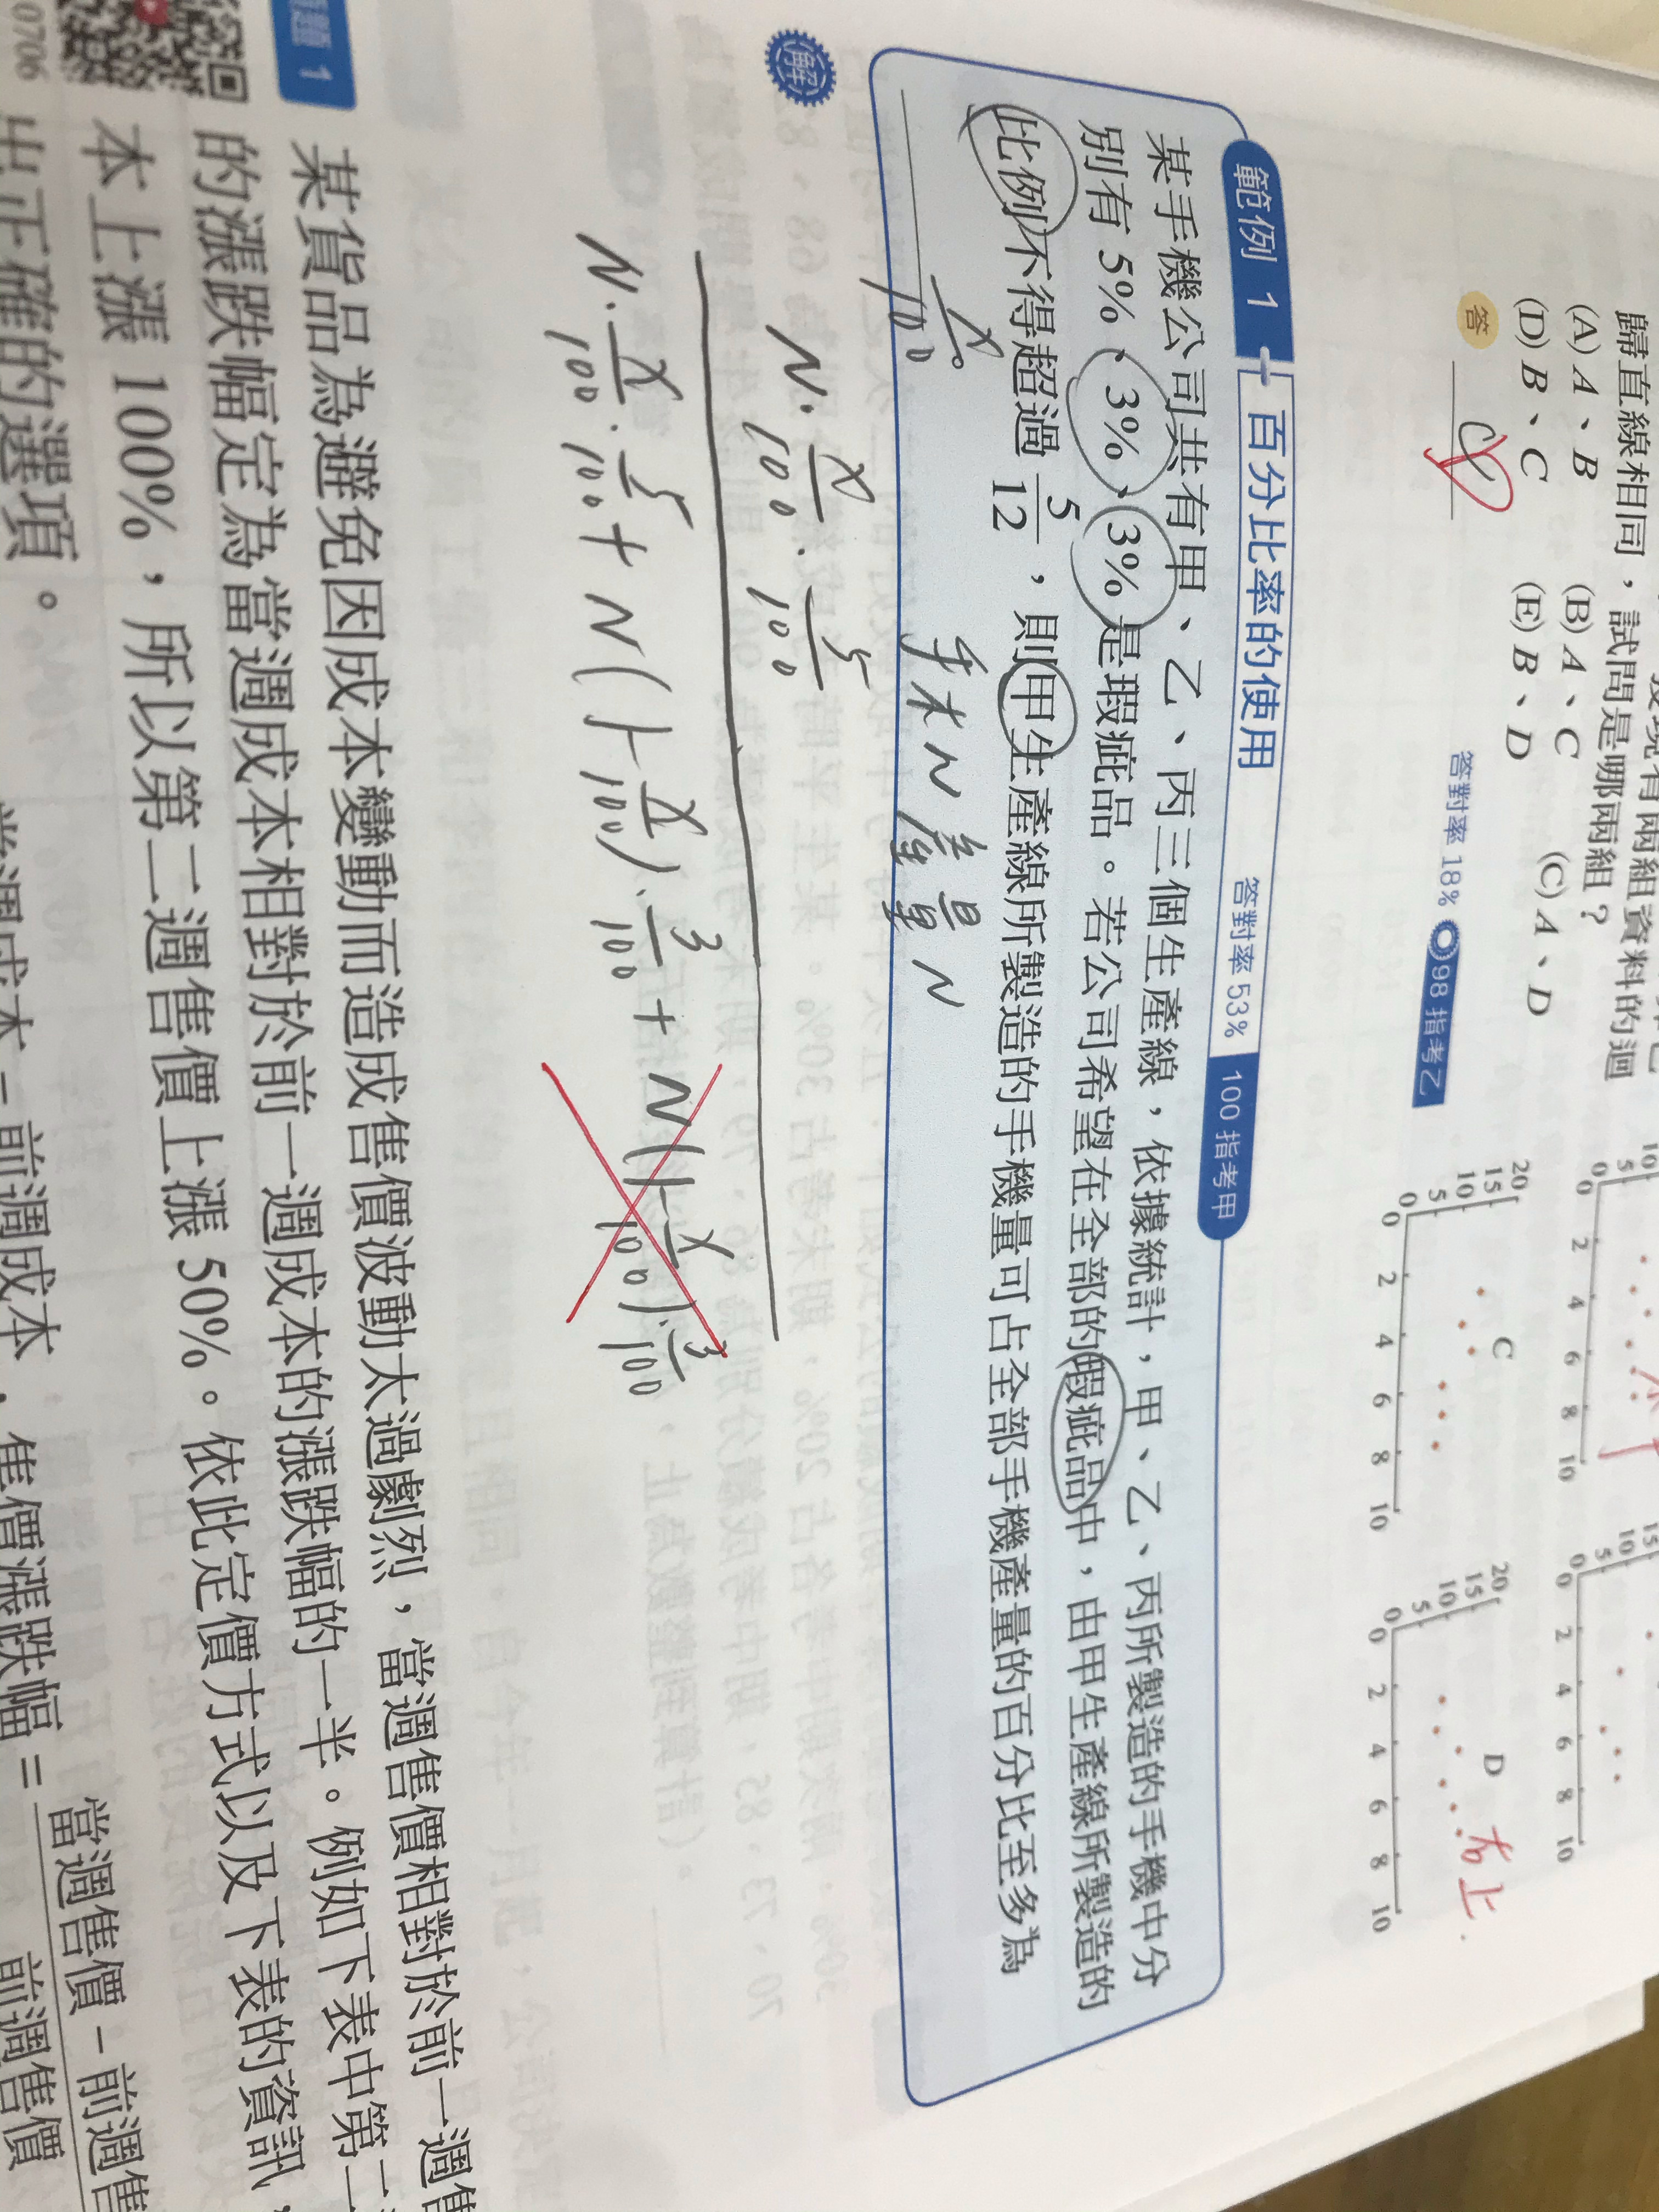 歸直線相同，試問是哪兩組？
(A) A、B
(B) A、C
(C) A、D
(D) B、C
(E) B、D
答
答對率 18%
98 指考乙
20
15
10
5
0
0
2
4
6
8
10
C
20
15
10
5
0
0
2
4
6
8
10
D
右上
範例 1
百分比率的使用
答對率 53%
100 指考甲
某手機公司共有甲、乙、丙三個生產線，依據統計，甲、乙、丙所製造的手機中分
別有 5%、3%、3% 是瑕疵品。若公司希望在全部的瑕疵品中，由甲生產線所製造的
比例不得超過 5/12，則甲生產線所製造的手機量可占全部手機產量的百分比至多為
x/100
N 產量 N
解
N · x/100 · 5/100
N · x/100 · 5/100 + N(1-x/100) · 3/100 + N(1-x/100) · 3/100
題 1
0706
某貨品為避免因成本變動而造成售價波動太過劇烈，當週售價相對於前一週售
的漲跌幅定為當週成本相對於前一週成本的漲跌幅的一半。例如下表中第二
本上漲 100%，所以第二週售價上漲 50%。依此定價方式以及下表的資訊，
出正確的選項。
當週成本－前週成本
，售價漲跌幅 = 當週售價－前週售
前週售價